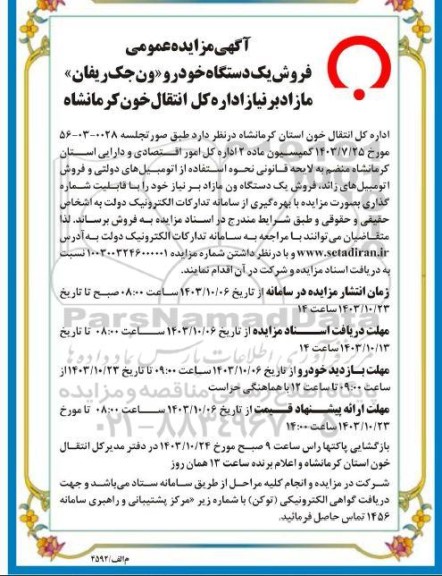 آگهی مزایده عمومی
فروش یک دستگاه خودرو «ون جک ریفان»
مازاد بر نیاز اداره کل انتقال خون کرمانشاه
اداره کل انتقال خون استان کرمانشاه درنظر دارد طبق صورتجلسه ۰۰۲۸-۰۳-۵۶
مورخ ۱۴۰۳/۷/۲۵ کمیسیون ماده ۲ اداره کل امور اقتصادی و دارایی استان
کرمانشاه منضم به لایحه قانونی نحوه استفاده از اتومبیل‌های دولتی و فروش
اتومبیل‌های زائد، فروش یک دستگاه ون مازاد بر نیاز خود را با قابلیت شماره
گذاری بصورت مزایده با بهره‌گیری از سامانه تدارکات الکترونیک دولت به اشخاص
حقیقی و حقوقی و طبق شرایط مندرج در اسناد مزایده به فروش برساند. لذا
متقاضیان می‌توانند با مراجعه به سامانه تدارکات الکترونیک دولت به آدرس
www.setadiran.ir و با درنظر داشتن شماره مزایده ۱۰۰۳۰۰۳۲۴۶۰۰۰۰۰۱ نسبت
به دریافت اسناد مزایده و شرکت در آن اقدام نمایند.
زمان انتشار مزایده در سامانه از تاریخ ۱۴۰۳/۱۰/۰۶ ساعت ۰۸:۰۰ صبح تا تاریخ
۱۴۰۳/۱۰/۲۳ ساعت ۱۴
مهلت دریافت اسناد مزایده از تاریخ ۱۴۰۳/۱۰/۰۶ ساعت ۰۸:۰۰ تا تاریخ
۱۴۰۳/۱۰/۱۳ ساعت ۱۴
مهلت بازدید خودرو از تاریخ ۱۴۰۳/۱۰/۰۶ ساعت ۰۹:۰۰ تا تاریخ ۱۴۰۳/۱۰/۲۳ از
ساعت ۰۹:۰۰ تا ساعت ۱۲ با هماهنگی حراست
مهلت ارائه پیشنهاد قیمت از تاریخ ۱۴۰۳/۱۰/۰۶ ساعت ۰۸:۰۰ تا مورخ
۱۴۰۳/۱۰/۲۳ ساعت ۱۴:۰۰
بازگشایی پاکتها راس ساعت ۹ صبح مورخ ۱۴۰۳/۱۰/۲۴ در دفتر مدیرکل انتقال
خون استان کرمانشاه و اعلام برنده ساعت ۱۳ همان روز
شرکت در مزایده و انجام کلیه مراحل از طریق سامانه ستاد می‌باشد و جهت
دریافت گواهی الکترونیکی (توکن) با شماره زیر «مرکز پشتیبانی و راهبری سامانه
۱۴۵۶ تماس حاصل فرمائید.
م/الف/۲۵۹۲
ParsNamadData
۰۲۱-۸۸۳۴۹۶۷۰